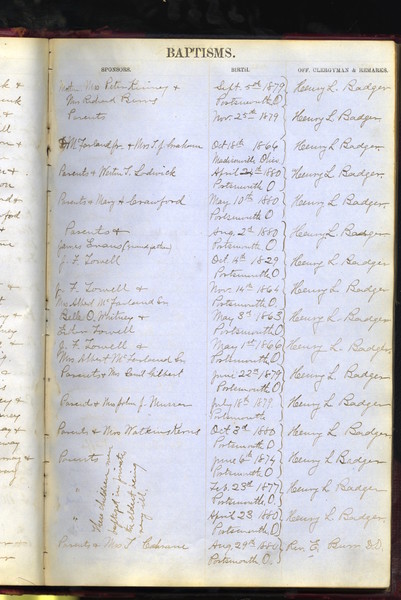 BAPTISMS.
SPONSORS. BIRTH. OFF. CLERGYMAN & REMARKS.
Mrs Peter Kinney & Sept. 5th 1879 Henry L. Badger
Mrs Richard Portsmouth O
Parents Nov. 25th 1879 Henry L. Badger
McFarland Jr. & Mrs T. J. Graham Oct 18th 1864 Henry L. Badger
Ohio
Parents & T. Lodwick April 24th 1880 Henry L. Badger
Portsmouth O
Parents & Mary & Crawford May 10th 1880 Henry L. Badger
Portsmouth O
Parents & Aug. 2nd 1880 Henry L. Badger
James Evans (grandfather) Portsmouth O
J. F. Towell Oct 14th 1829 Henry L Badger
Portsmouth O
J. F. Towell & Nov. 14th 1864 Henry L Badger
Mrs Albert McFarland Sr Portsmouth O.
Belle O. Whitney & May 3rd 1863 Henry L Badger
Towell Portsmouth O
J. F. Towell & May 1st 1866 Henry L. Badger
Mrs Albert McFarland Sr Portsmouth O.
Parents & Mrs Gilbert June 22nd 1879 Henry L Badger
Portsmouth O
Parents & Mrs John J. Murran July 18th 1879 Henry L. Badger
Portsmouth
Parents & Mrs Watkins Oct 3rd 1880 Henry L. Badger
Portsmouth O
Parents June 6th 1874 Henry L Badger
Portsmouth O
" Feb. 23rd 1877 Henry L Badger
Portsmouth O.
" April 23 1880 Henry L. Badger
Portsmouth O
children were
baptized in private
the eldest being
very ill.
Parents & Mrs T. Cochrane Aug. 29th 1880 Rev. E. Burr D.D.
Portsmouth O.